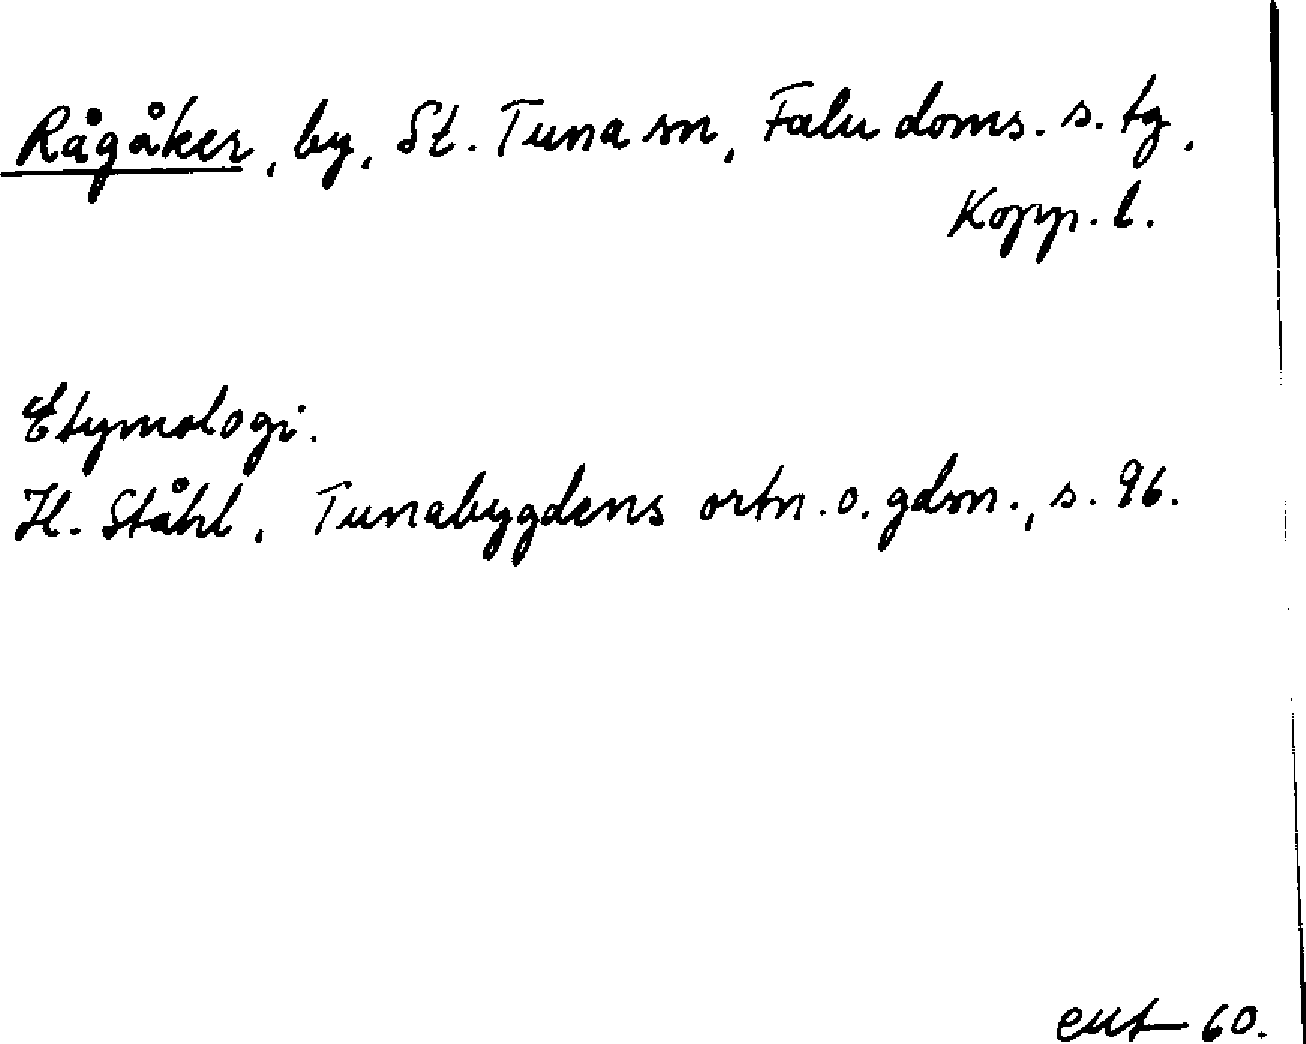 Rågåker, by, St. Tuna sn, Falu doms. s. tg,
Kopp. l.
Etymologi.
H. Ståhl, Tunabygdens ortn. o. gdsn., s. 96.
60.